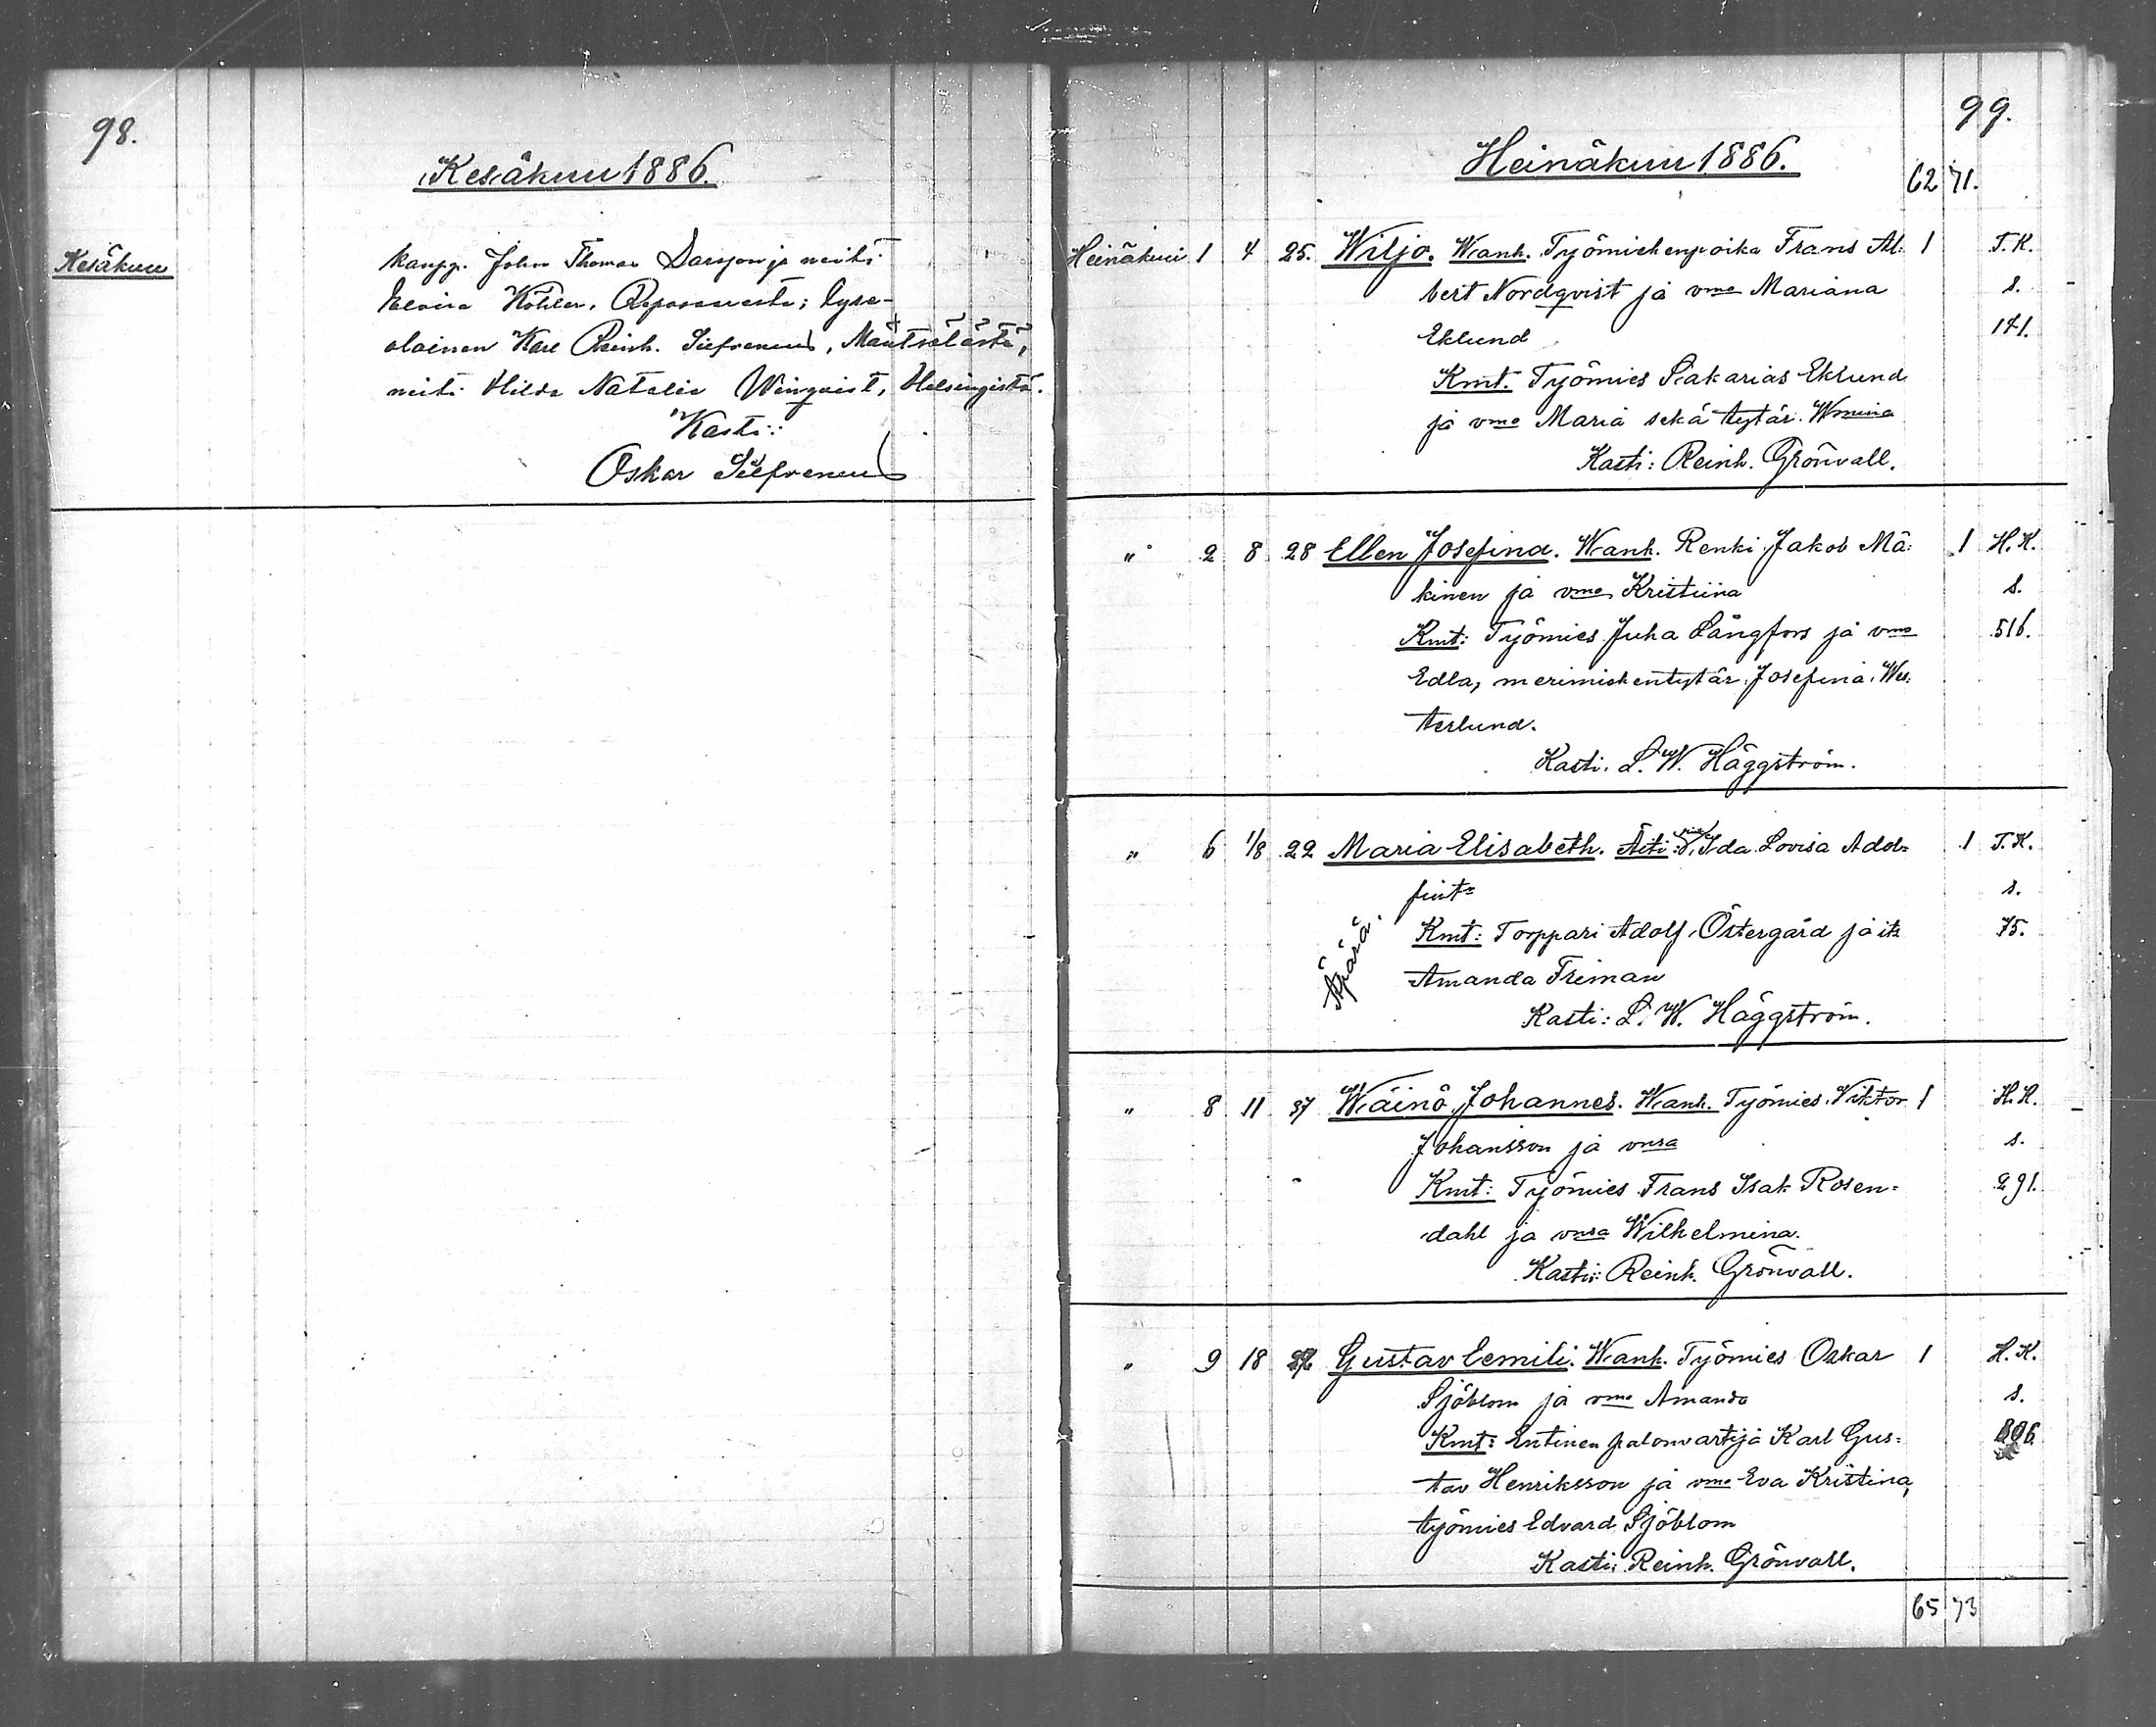 98.
Kesäkuu 1886.
Kesäkuu
kaupp. John Thomas ja neiti
Elvira Köhler, ; lyse-
olainen Karl Reinh. Siefvenius, Mäntsälästä,
neiti Hilda Natalia Winqvist, Helsingistä.
Kasti:
Oskar
99.
Heinäkuu 1886.
62 71.
Heinäkuu 1 4 25. Wiljo. Wanh. Työmiehenpoika Frans Al- 1 T.K.
bert Nordqvist ja vmo Mariana s.
Eklund 141.
Kmt. Työmies Sakarias Eklund
ja vmo Maria sekä tytär Wmina
Kasti: Reinh. Grönvall.
" 2 8 28 Ellen Josefina. Wanh. Renki Jakob Mä- 1 H.K.
kinen ja vmo Kristiina s.
Kmt: Työmies Juha Långfors ja vmo 516.
Edla, merimiehentytär Josefina We-
terlund.
Kasti. L. W. Häggström.
" 6 1/8 22 Maria Elisabeth. Äiti: Ida Lovisa Adol- 1 T.K.
fint- s.
Äpärä.
Kmt: Torppari Adolf Östergård ja it: 75.
Amanda Friman
Kasti: L. W. Häggström.
" 8 11 37 Wäinö Johannes. Wanh. Työmies Viktor 1 H.K.
Johansson ja vnsa s.
Kmt: Työmies Frans Isak Rosen- 291.
dahl ja vnsa Wilhelmina.
Kasti: Reinh. Grönvall.
" 9 18 Gustav Eemili. Wanh. Työmies Oskar 1 H.K.
Sjöblom ja vmo Amanda s.
Kmt: Entinen palonvartija Karl Gus-
tav Henriksson ja vmo Eva Kristina,
työmies Edvard Sjöblom
Kasti: Reinh. Grönvall.
65 73